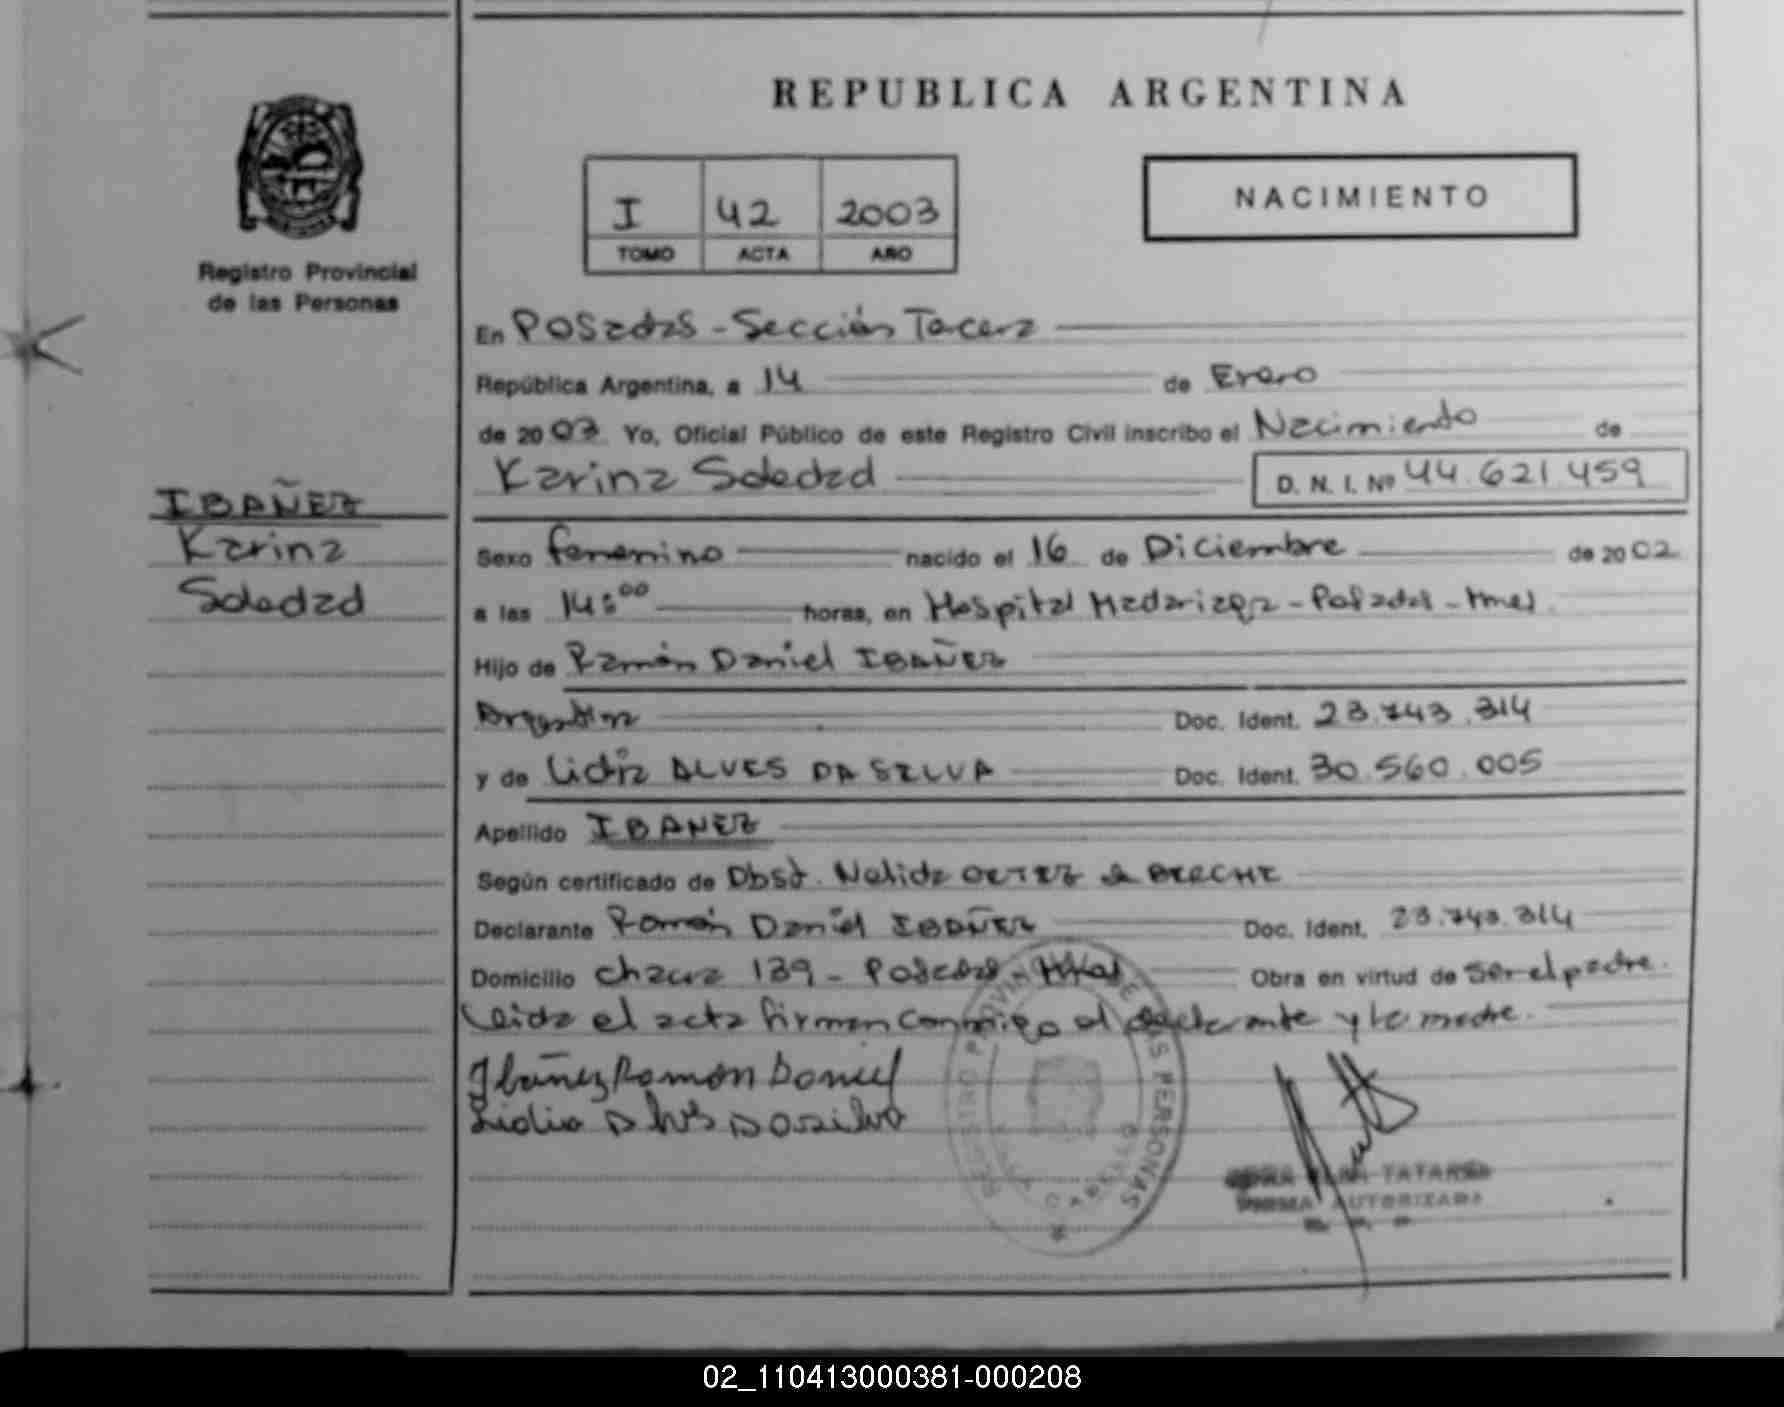 REPUBLICA ARGENTINA
I 42 2003
TOMO ACTA AÑO
NACIMIENTO
Registro Provincial
de las Personas
IBAÑEZ
Karina
Soledad
En Posadas - Sección Tercera
República Argentina, a 14 de Enero
de 2003 Yo, Oficial Público de este Registro Civil inscribo el Nacimiento de
Karina Soledad D. N. I. Nº 44.621.459
Sexo femenino nacido el 16 de Diciembre de 2002
a las 14:00 horas, en Hospital Madariaga - Posadas - Mnes
Hijo de Ramón Daniel IBAÑEZ
Argentina Doc. Ident. 23.743.314
y de Lidia ALVES DA SILVA Doc. Ident. 30.560.005
Apellido IBAÑEZ
Según certificado de Obst. Nelida de
Declarante Ramón Daniel IBAÑEZ Doc. Ident. 23.743.314
Domicilio chacra 139 - Posadas - Mnes Obra en virtud de ser el padre.
Leida el acta firman conmigo el declarante y la madre.
Ibañez Ramón Daniel
Lidia Alves Da silva
REGISTRO PROVINCIAL DE LAS PERSONAS
TATAREN
FIRMA AUTORIZADA
02_110413000381-000208